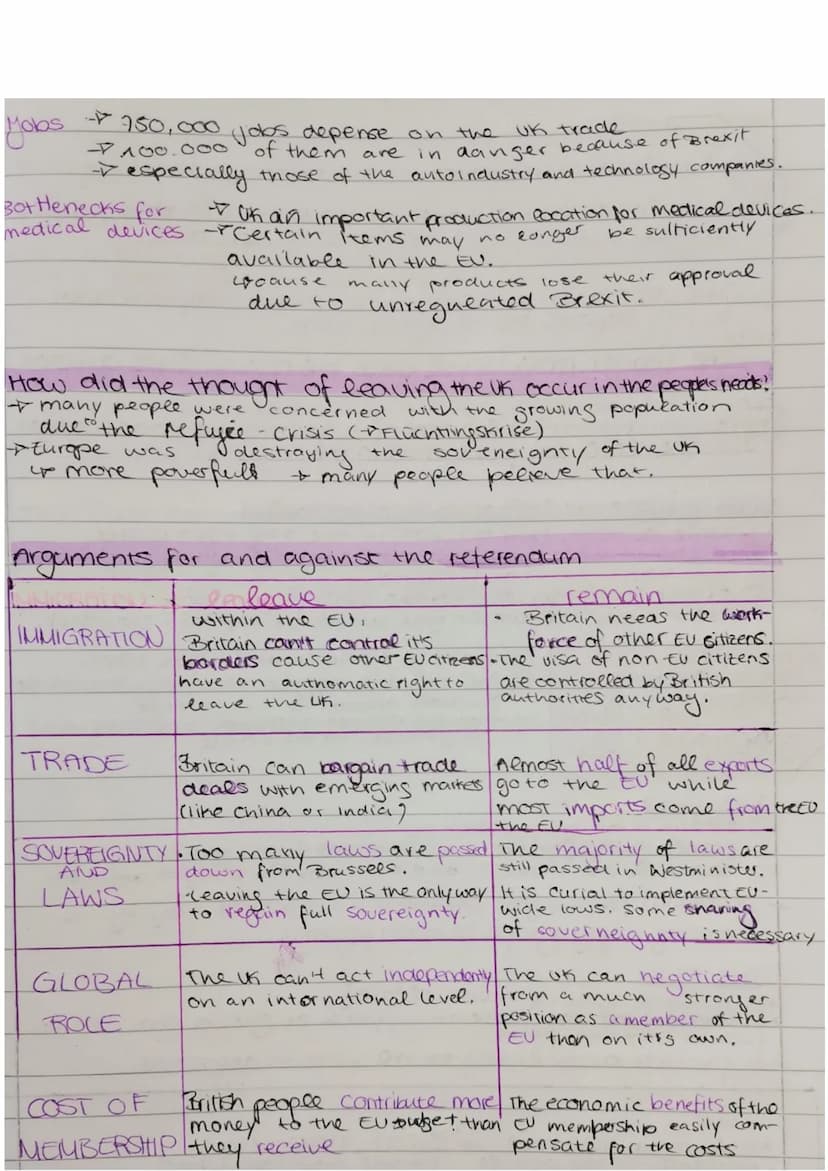 Jobs → 750,000 jobs depense on the UK trade
→ 100.000 of them are in danger because of Brexit
→ especially those of the autoindustry and technology companies.
Bottlenecks for → UK an important production location for medical devices.
medical devices → Certain items may no longer be sufficiently
available in the EU.
↳ cause many products lose their approval
due to unregulated Brexit.
How did the thought of leaving the UK occur in the people's heads?
→ many people were concerned with the growing population
due to the refugee-crisis (→ Flüchtingskrise)
→ Europe was destraying the sovereignty of the UK
↳ more powerfull → many people believe that.
Arguments for and against the referendum
leave remain
IMMIGRATION
within the EU.
Britain can't control it's
borders cause other EU citizens
have an authomatic right to
leave the UK.
• Britain needs the work-
force of other EU citizens.
• The visa of non-EU citizens
are controlled by British
authorities anyway.
TRADE
Britain can bargain trade
deals with emerging markes
(like China or India)
Almost half of all exports
go to the EU while
most imports come from the EU
the EU
SOVEREIGNTY
AND
LAWS
• Too many laws are passed
down from Brussels.
• Leaving the EU is the only way
to regain full sovereignty.
The majority of laws are
still passed in Westminister.
It is curial to implement EU-
wide laws. Some sharing
of souverneignnty is necessary
GLOBAL
ROLE
The UK can't act independenty
on an international level.
The UK can negotiate
from a much stronger
position as a member of the
EU than on it's own.
COST OF
MEMBERSHIP
British people contribute more
money to the EU budget than
they receive
The economic benefits of the
EU membership easily com-
pensate for the costs